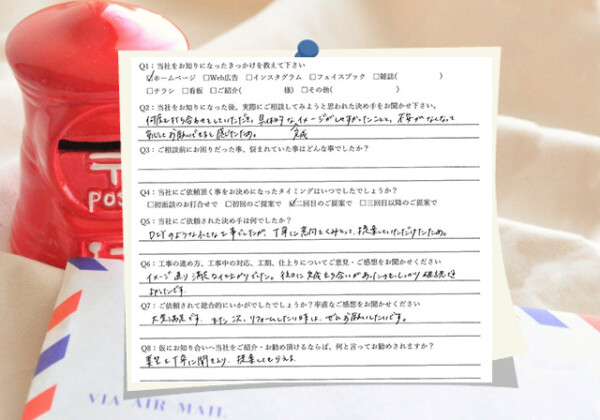 Q1：当社をお知りになったきっかけを教えて下さい
☑ホームページ □Web広告 □インスタグラム □フェイスブック □雑誌( )
□チラシ □看板 □ご紹介( 様) □その他( )
Q2：当社をお知りになった後、実際にご相談してみようと思われた決め手をお聞かせ下さい。
何度も打ち合わせをしていただき、具体的な完成イメージがしやすかったことと、不安がなくなって
安心してお願いできると感じたため。
Q3：ご相談前にお困りだった事、悩まれていた事はどんな事でしたか？
Q4：当社にご依頼頂く事をお決めになったタイミングはいつでしたでしょうか？
□初面談のお打合せで □初回のご提案で ☑二回目のご提案で □三回目以降のご提案で
Q5：当社にご依頼された決め手は何でしたか？
DIYのような小さな工事でしたが、丁寧に見付とくみとって、提案していただけたため。
Q6：工事の進め方、工事中の対応、工期、仕上りについてご意見・ご感想をお聞かせください
イメージ通り満足な仕上がりでした。
Q7：ご依頼されて総合的にいかがでしたでしょうか？率直なご感想をお聞かせください
大変満足です。また次、リフォームしたい時は、ぜひお願いしたいです。
Q8：仮にお知り合いへ当社をご紹介・お勧め頂けるならば、何と言ってお勧めされますか？
要望を丁寧に聞きとり、提案してもらえる
POS
VIA AIR MAIL